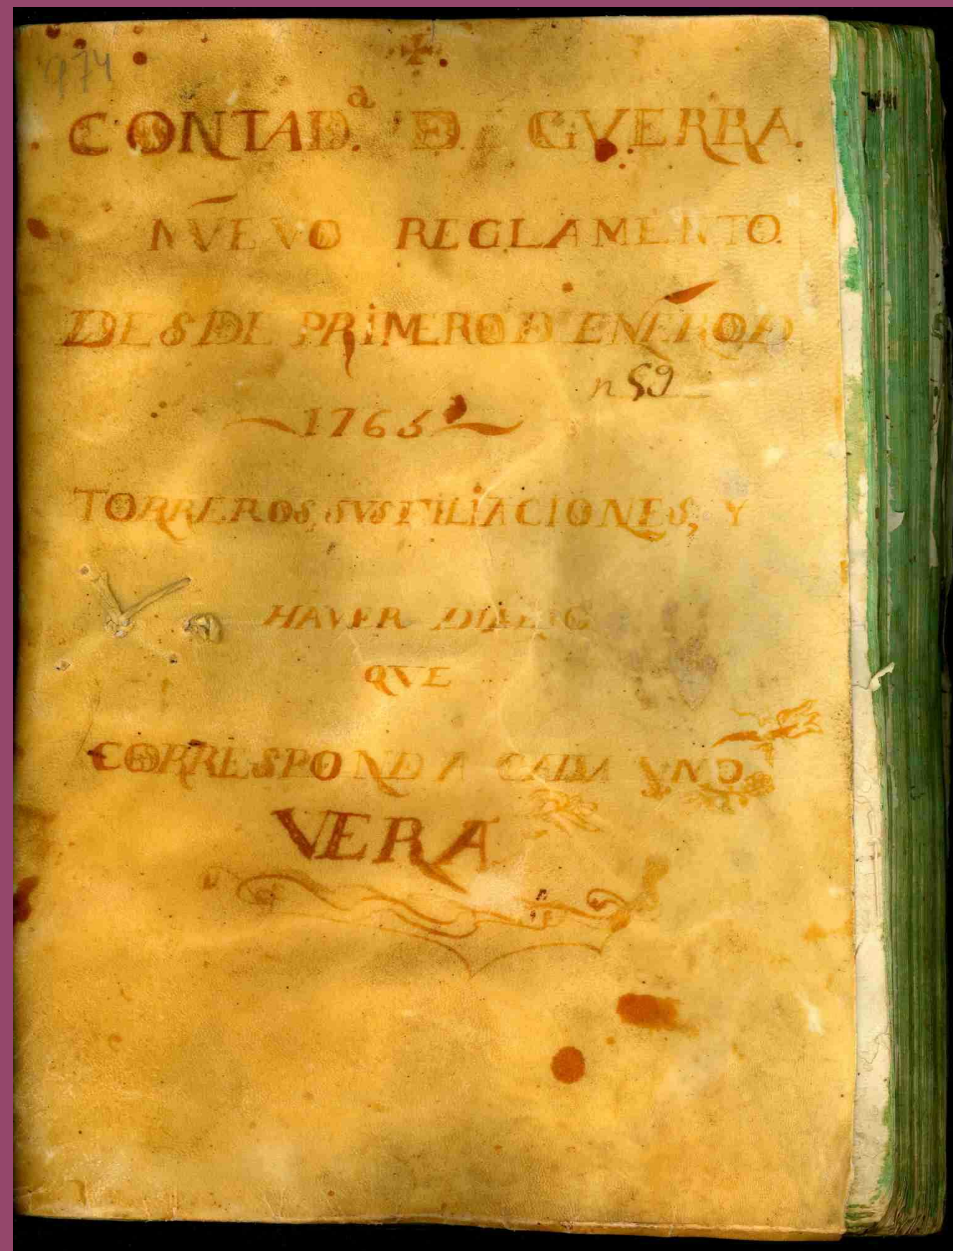 974
CONTAD.ª D. GVERRA.
NVEVO REGLAMENTO.
DESDE PRIMERO D ENERO D
n 59
1765
TORREROS, SVS FILIACIONES, Y
HAVER DIARIO
QVE
CORRESPOND A CADA VNO.
VERA